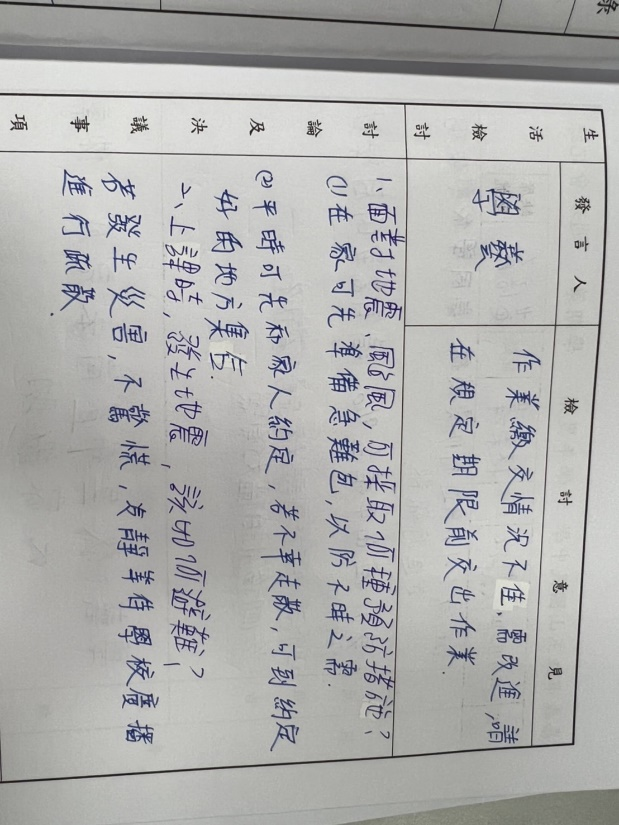 錄
生活檢討
發言人
檢討意見
學藝
作業繳交情況不佳,需改進,請
在規定期限前交出作業.
討論及決議事項
1、面對地震、颱風,可採取何種預防措施?
(1)在家可先準備急難包,以防不時之需.
(2)平時可先和家人約定,若不幸走散,可到約定
好的地方集合.
二、上課時,發生地震,該如何避難?
若發生災害,不驚慌,安靜等待學校廣播
進行疏散.